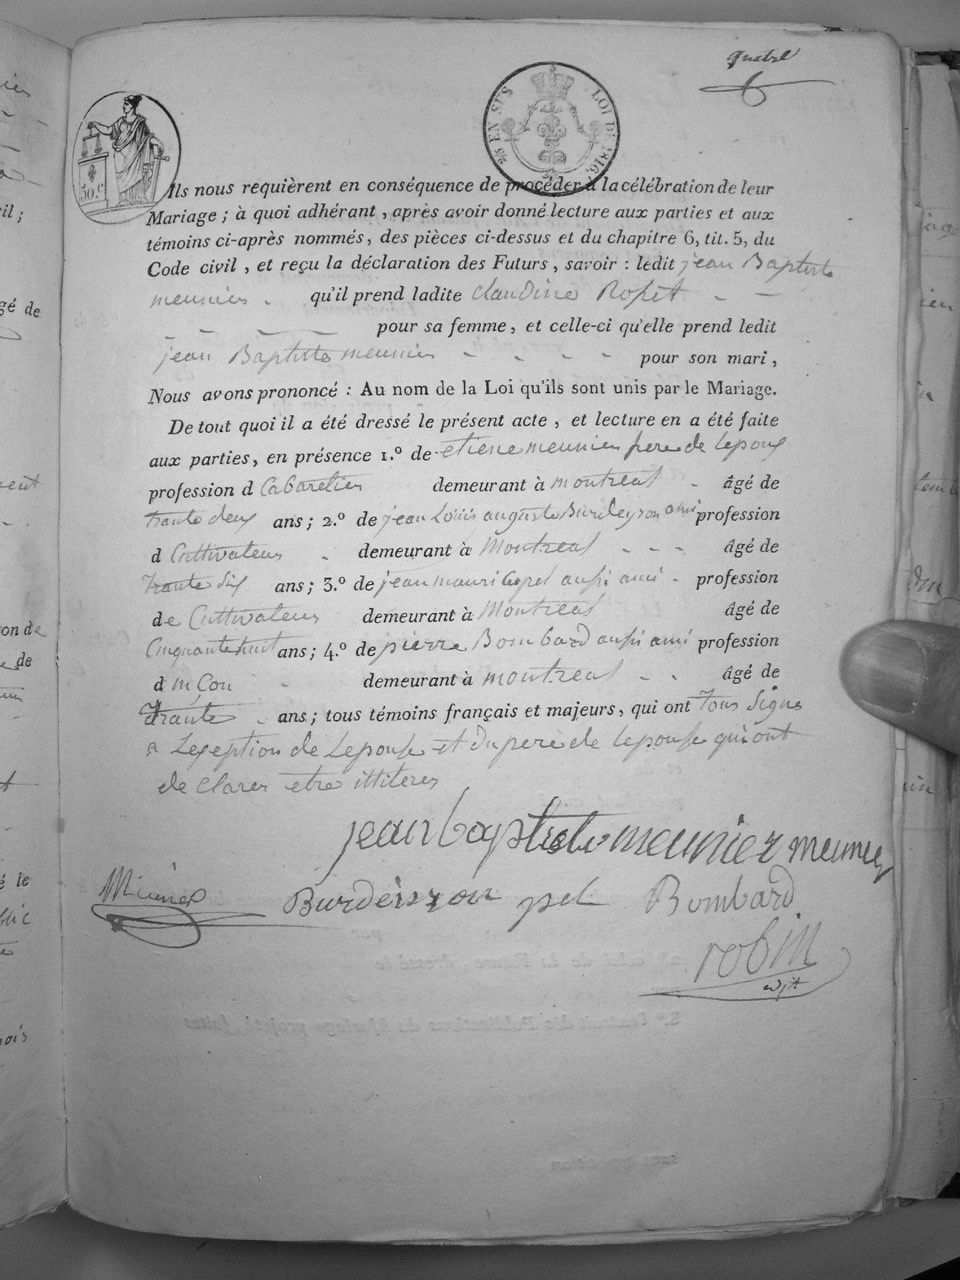 quatre
25 EN SUS LOI DE 1816.
50.C
Ils nous requièrent en conséquence de procéder à la célébration de leur
Mariage ; à quoi adhérant , après avoir donné lecture aux parties et aux
témoins ci-après nommés, des pièces ci-dessus et du chapitre 6, tit. 5, du
Code civil , et reçu la déclaration des Futurs , savoir : ledit jean Baptiste
meunier - qu'il prend ladite Claudine Ropet - -
- - - pour sa femme, et celle-ci qu'elle prend ledit
jean Baptiste meunier - - - - pour son mari ,
Nous avons prononcé : Au nom de la Loi qu'ils sont unis par le Mariage.
De tout quoi il a été dressé le présent acte , et lecture en a été faite
aux parties, en présence 1.º de etiene meunier pere de lepoux
profession d Cabaretier demeurant à montreal - âgé de
trante deux ans ; 2.º de jean Louis auguste ami profession
d Cultivateur - demeurant à Montreal - - - âgé de
trante six ans ; 3.º de jean mauri aussi ami - profession
de Cultivateur demeurant à Montreal âgé de
Cinquante huit ans ; 4.º de pierre Bombard aussi ami profession
d mçon - demeurant à montreal - - âgé de
trante - ans ; tous témoins français et majeurs, qui ont tous signe
a Lexeption de Lepouse et du pere de lepouse qui ont
de clarer etre illiteres
jean baptiste meunier meunier
Burdeiron Bombard
robin
adjt